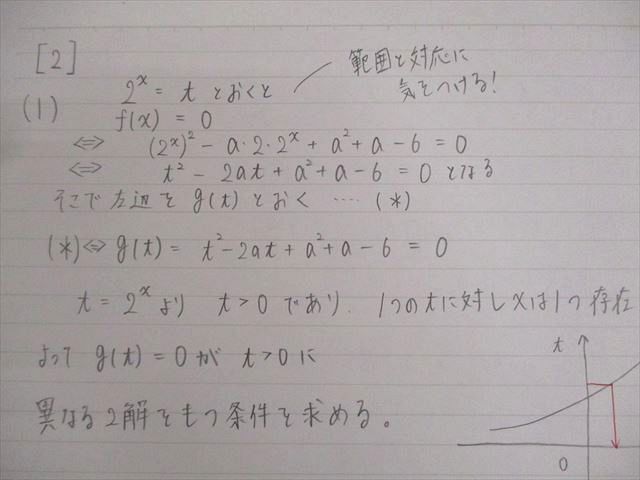 [2]
範囲と対応に
気をつける!
(1) 2^x = t とおくと
f(x) = 0
⇔ (2^x)^2 - a・2・2^x + a^2 + a - 6 = 0
⇔ t^2 - 2at + a^2 + a - 6 = 0 となる
そこで左辺を g(t) とおく ‥‥ (*)
(*)⇔ g(t) = t^2 - 2at + a^2 + a - 6 = 0
t = 2^x より t > 0 であり、1つのtに対しxは1つ存在
よって g(t) = 0 が t > 0 に
異なる2解をもつ条件を求める。
t
0